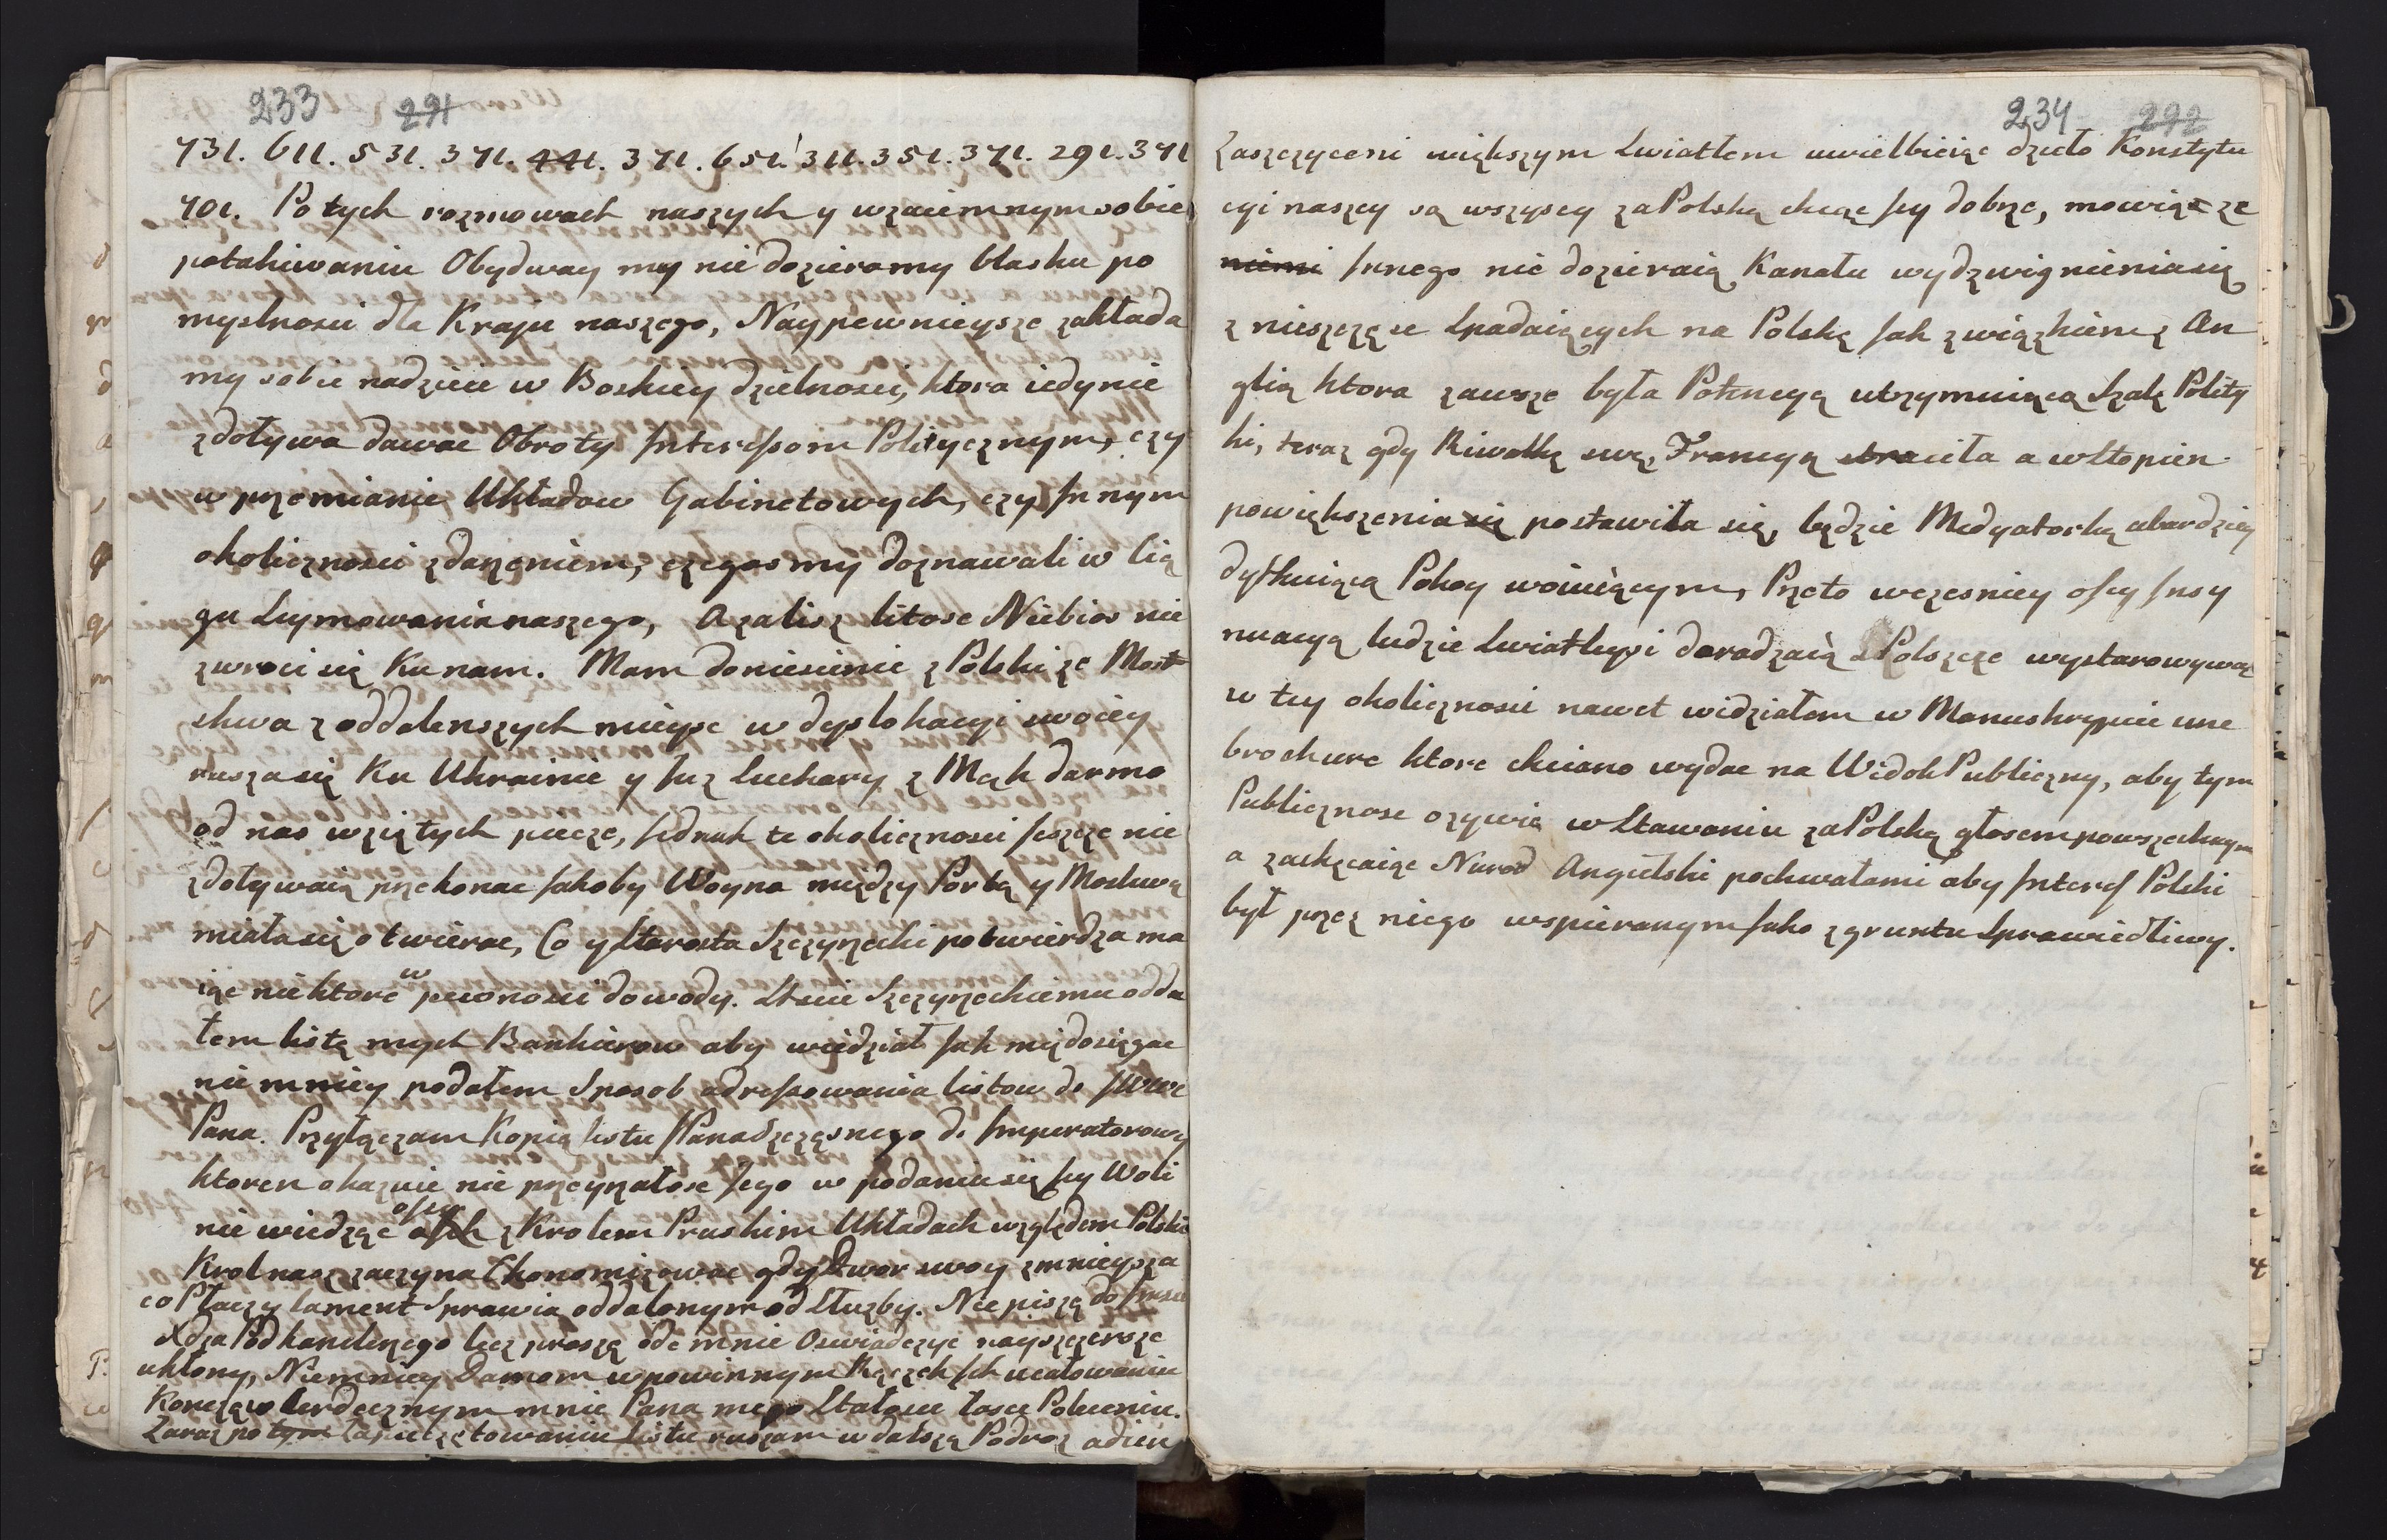 233 291
731. 611. 531. 371. 441. 371. 651. 311. 351. 371. 291. 371
701. Po tych rozmowach naszych y wzaiemnym sobie
potakiwaniu Obydway my nie dozieramy blasku po
myslnosci dla Kraju naszego, Naypewnieysze zakłada
my sobie nadzieie w Boskiey dzielnosci, ktora iedynie
zdoływa dawac Obroty Interessom Politycznym, czy
w przemianie Układow Gabinetowych, czy Innym
okolicznosci zdarzeniem, czegosmy doznawali w Cią
gu Seymowania naszego, Azalisz litosc Niebios nie
zwroci się Ku nam. Mam doniesienie z Polski ze Mosk
chwa z oddalenszych mieysc w dyslokacyi swoiey
rusza się Ku Ukrainie y Juz Suchary z Mąk darmo
od nas wziętych piecze, Jednak te okolicznosci Jeszcze nie
zdoływaią przekonac Jakoby Woyna między Portą y Moskwą
miała się otwierac, Co y Starosta Szczyrzecki potwierdza ma
iąc niektore w pewnosci dowody. Ktoremu Szczyrzeckiemu odda
łem listę mych Bankierow aby wiedział Jak mię dosięgac
niemniey podałem Sposob adressowania listow do JWWc
Pana. Przyłączam Kopią listu JPana Szczęsnego do Imperatorowy
ktoren okazuie nie przeyrzałosc Jego w podaniu się Jey Woli
nie wiedząc o Jey z Krolem Pruskim Układach względem Polski
Krol nasz zaczyna Ekonomizowac gdy Dwor swoy zmnieysza
co Płaczy lament Sprawia oddalonym od Służby. Nie piszę do
Xdza Podkanclerzego lecz proszę odemnie Oswiadczyc nayszczersze
ukłony, Niemniey Damom w powinnym Rączek Ich ucałowaniu
Konczę w Serdecznym mnie Pana mego Stałosci łasce Poleceniu.
Zaraz po tym Zapieczętowaniu listu ruszam w dalszą Podroz adieu
234 292
Zaszczyceni większym Swiatłem uwielbiaiąc dzieło Konstytu
cyi naszey są wszyscy za Polską chcąc Jey dobrze, mowiąc ze
niemi Innego nie dozieraią Kanału wydzwignienia się
z nieszczęsc Spadaiących na Polskę Jak związkiem z An
glią ktora zawsze była Potencyą utrzymuiącą Szalę Polity
ki, teraz gdy Riwalkę swą Francyą straciła a w Stopien
powiększenia się postawiła się, będzie Medyatorką abardziey
dyktuiącą Pokoy woiuiącym, Przeto wczesniey o Jey Insy
nuacyą ludzie Swiatleysi doradzaią Polszcze wystarowywac
w tey okolicznosci nawet widziałem w Manuskrypcie une
brochure ktore chciano wydac na Widok Publiczny, aby tym
Publicznosc ozywic w Stawaniu za Polską głosem powszechnym
a zachęcaiąc Narod Angielski pochwałami aby Interes Polski
był przez niego wspieranym Jako z gruntu Sprawiedliwy.